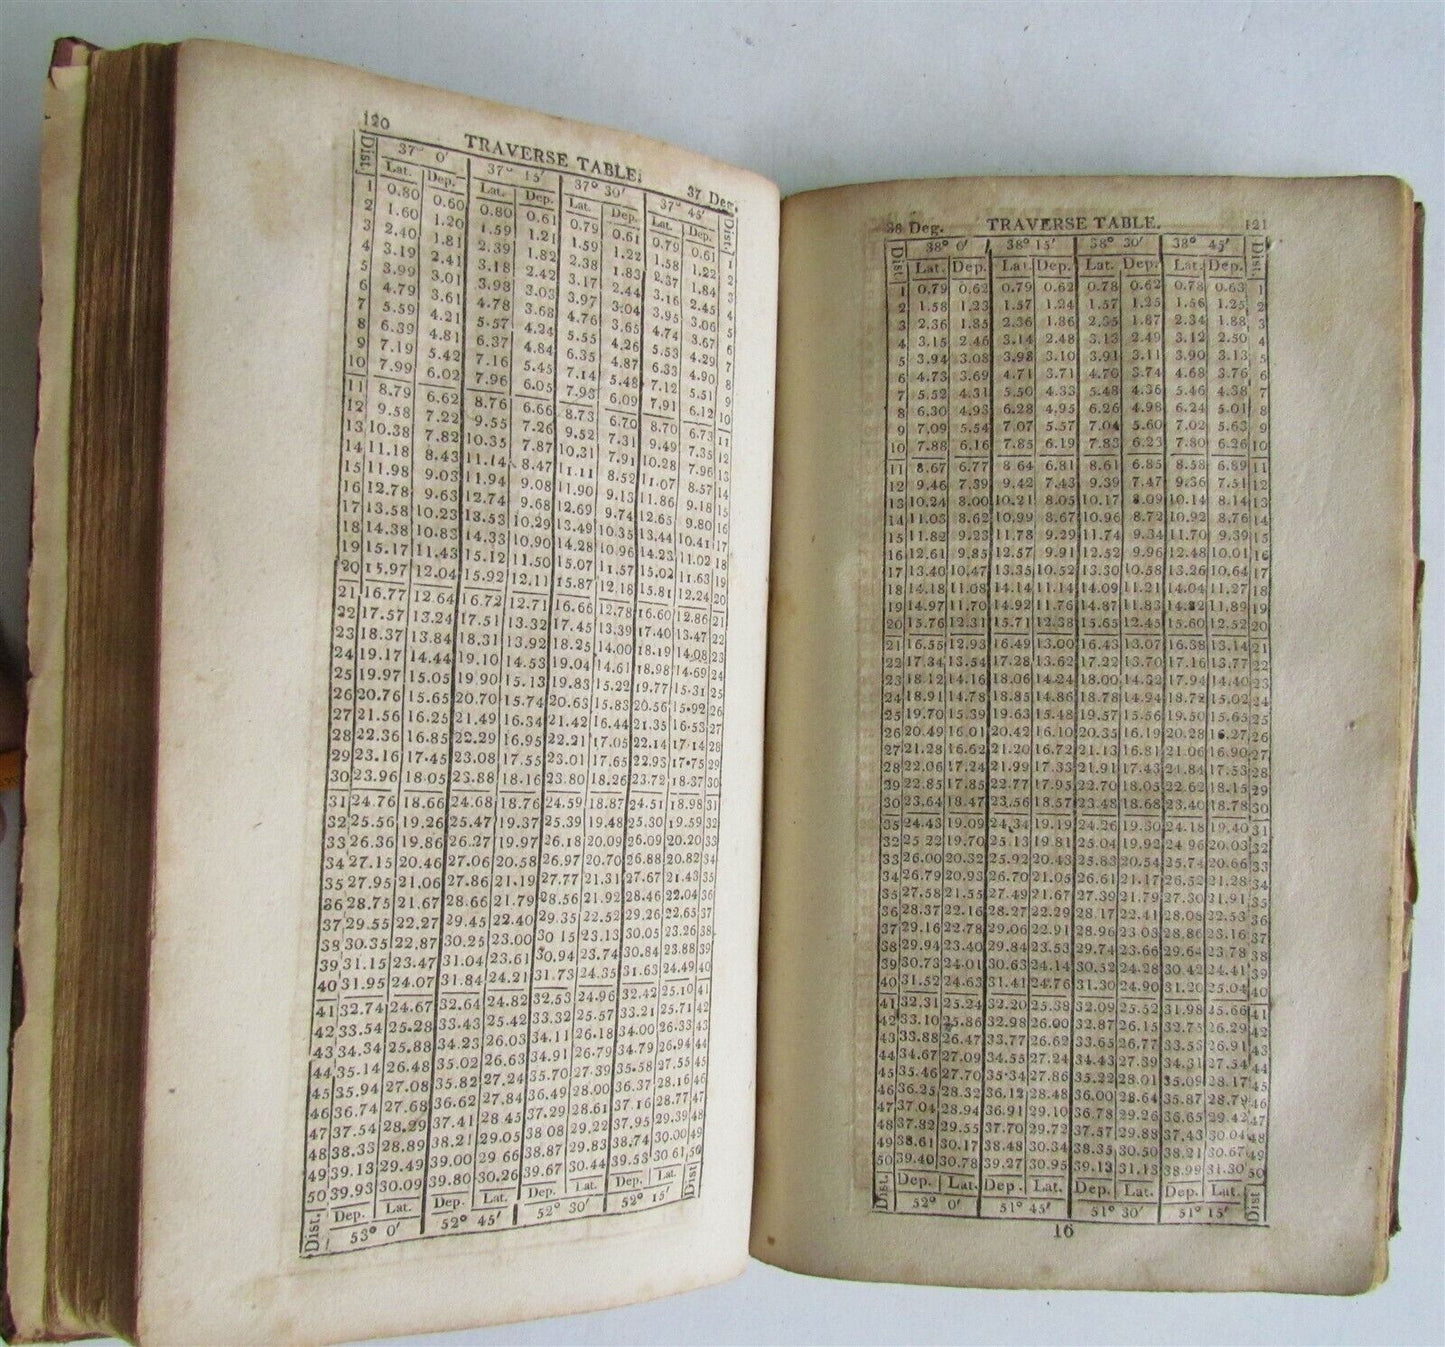 120 TRAVERSE TABLE. 37 Deg.
Dist. 37° 0' 37° 15' 37° 30' 37° 45' Dist.
Lat. Dep. Lat. Dep. Lat. Dep. Lat. Dep.
1 0.80 0.60 0.80 0.61 0.79 0.61 0.79 0.61 1
2 1.60 1.20 1.59 1.21 1.59 1.22 1.58 1.22 2
3 2.40 1.81 2.39 1.82 2.38 1.83 2.37 1.84 3
4 3.19 2.41 3.18 2.42 3.17 2.44 3.16 2.45 4
5 3.99 3.01 3.98 3.03 3.97 3.04 3.95 3.06 5
6 4.79 3.61 4.78 3.68 4.76 3.65 4.74 3.67 6
7 5.59 4.21 5.57 4.24 5.55 4.26 5.53 4.29 7
8 6.39 4.81 6.37 4.84 6.35 4.87 6.33 4.90 8
9 7.19 5.42 7.16 5.45 7.14 5.48 7.12 5.51 9
10 7.99 6.02 7.96 6.05 7.93 6.09 7.91 6.12 10
11 8.79 6.62 8.76 6.66 8.73 6.70 8.70 6.73 11
12 9.58 7.22 9.55 7.26 9.52 7.31 9.49 7.35 12
13 10.38 7.82 10.35 7.87 10.31 7.91 10.28 7.96 13
14 11.18 8.43 11.14 8.47 11.11 8.52 11.07 8.57 14
15 11.98 9.03 11.94 9.08 11.90 9.13 11.86 9.18 15
16 12.78 9.63 12.74 9.68 12.69 9.74 12.65 9.80 16
17 13.58 10.23 13.53 10.29 13.49 10.35 13.44 10.41 17
18 14.38 10.83 14.33 10.90 14.28 10.96 14.23 11.02 18
19 15.17 11.43 15.12 11.50 15.07 11.57 15.02 11.63 19
20 15.97 12.04 15.92 12.11 15.87 12.18 15.81 12.24 20
21 16.77 12.64 16.72 12.71 16.66 12.78 16.60 12.86 21
22 17.57 13.24 17.51 13.32 17.45 13.39 17.40 13.47 22
23 18.37 13.84 18.31 13.92 18.25 14.00 18.19 14.08 23
24 19.17 14.44 19.10 14.53 19.04 14.61 18.98 14.69 24
25 19.97 15.05 19.90 15.13 19.83 15.22 19.77 15.31 25
26 20.76 15.65 20.70 15.74 20.63 15.83 20.56 15.92 26
27 21.56 16.25 21.49 16.34 21.42 16.44 21.35 16.53 27
28 22.36 16.85 22.29 16.95 22.21 17.05 22.14 17.14 28
29 23.16 17.45 23.08 17.55 23.01 17.65 22.93 17.75 29
30 23.96 18.05 23.88 18.16 23.80 18.26 23.72 18.37 30
31 24.76 18.66 24.68 18.76 24.59 18.87 24.51 18.98 31
32 25.56 19.26 25.47 19.37 25.39 19.48 25.30 19.59 32
33 26.36 19.86 26.27 19.97 26.18 20.09 26.09 20.20 33
34 27.15 20.46 27.06 20.58 26.97 20.70 26.88 20.82 34
35 27.95 21.06 27.86 21.19 27.77 21.31 27.67 21.43 35
36 28.75 21.67 28.66 21.79 28.56 21.92 28.46 22.04 36
37 29.55 22.27 29.45 22.40 29.35 22.52 29.26 22.65 37
38 30.35 22.87 30.25 23.00 30 15 23.13 30.05 23.26 38
39 31.15 23.47 31.04 23.61 30.94 23.74 30.84 23.88 39
40 31.95 24.07 31.84 24.21 31.73 24.35 31.63 24.49 40
41 32.74 24.67 32.64 24.82 32.53 24.96 32.42 25.10 41
42 33.54 25.28 33.43 25.42 33.32 25.57 33.21 25.71 42
43 34.34 25.88 34.23 26.03 34.11 26.18 34.00 26.33 43
44 35.14 26.48 35.02 26.63 34.91 26.79 34.79 26.94 44
45 35.94 27.08 35.82 27.24 35.70 27.39 35.58 27.55 45
46 36.74 27.68 36.62 27.84 36.49 28.00 36.37 28.16 46
47 37.54 28.29 37.41 28.45 37.29 28.61 37.16 28.77 47
48 38.33 28.89 38.21 29.05 38 08 29.22 37.95 29.39 48
49 39.13 29.49 39.00 29.66 38.87 29.83 38.74 30.00 49
50 39.93 30.09 39.80 30.26 39.67 30.44 39.53 30 61 50
Dist. Dep. Lat. Dep. Lat. Dep. Lat. Dep. Lat. Dist
53° 0' 52° 45' 52° 30' 52° 15'
38 Deg. TRAVERSE TABLE. 121
Dist. 38° 0' 38° 15' 38° 30' 38° 45' Dist.
Lat. Dep. Lat. Dep. Lat. Dep. Lat. Dep.
1 0.79 0.62 0.79 0.62 0.78 0.62 0.78 0.63 1
2 1.58 1.23 1.57 1.24 1.57 1.25 1.56 1.25 2
3 2.36 1.85 2.36 1.86 2.35 1.87 2.34 1.88 3
4 3.15 2.46 3.14 2.48 3.13 2.49 3.12 2.50 4
5 3.94 3.08 3.98 3.10 3.91 3.11 3.90 3.13 5
6 4.73 3.69 4.71 3.71 4.70 3.74 4.68 3.76 6
7 5.52 4.31 5.50 4.33 5.48 4.36 5.46 4.38 7
8 6.30 4.93 6.28 4.95 6.26 4.98 6.24 5.01 8
9 7.09 5.54 7.07 5.57 7.04 5.60 7.02 5.63 9
10 7.88 6.16 7.85 6.19 7.83 6.23 7.80 6.26 10
11 8.67 6.77 8 64 6.81 8.61 6.85 8.58 6.89 11
12 9.46 7.39 9.42 7.43 9.39 7.47 9.36 7.51 12
13 10.24 8.00 10.21 8.05 10.17 8.09 10.14 8.14 13
14 11.03 8.62 10.99 8.67 10.96 8.72 10.92 8.76 14
15 11.82 9.23 11.78 9.29 11.74 9.34 11.70 9.39 15
16 12.61 9.85 12.57 9.91 12.52 9.96 12.48 10.01 16
17 13.40 10.47 13.35 10.52 13.30 10.58 13.26 10.64 17
18 14.18 11.08 14.14 11.14 14.09 11.21 14.04 11.27 18
19 14.97 11.70 14.92 11.76 14.87 11.83 14.82 11.89 19
20 15.76 12.31 15.71 12.38 15.65 12.45 15.60 12.52 20
21 16.55 12.93 16.49 13.00 16.43 13.07 16.38 13.14 21
22 17.34 13.54 17.28 13.62 17.22 13.70 17.16 13.77 22
23 18.12 14.16 18.06 14.24 18.00 14.32 17.94 14.40 23
24 18.91 14.78 18.85 14.86 18.78 14.94 18.72 15.02 24
25 19.70 15.39 19.63 15.48 19.57 15.56 19.50 15.65 25
26 20.49 16.01 20.42 16.10 20.35 16.19 20.28 16.27 26
27 21.28 16.62 21.20 16.72 21.13 16.81 21.06 16.90 27
28 22.06 17.24 21.99 17.33 21.91 17.43 21.84 17.53 28
29 22.85 17.85 22.77 17.95 22.70 18.05 22.62 18.15 29
30 23.64 18.47 23.56 18.57 23.48 18.68 23.40 18.78 30
35 24.43 19.09 24.34 19.19 24.26 19.30 24.18 19.40 31
32 25 22 19.70 25.13 19.81 25.04 19.92 24 96 20.03 32
33 26.00 20.32 25.92 20.43 25.83 20.54 25.74 20.66 33
34 26.79 20.93 26.70 21.05 26.61 21.17 26.52 21.28 34
35 27.58 21.55 27.49 21.67 27.39 21.79 27.30 21.91 35
36 28.37 22.16 28.27 22.29 28.17 22.41 28.08 22.53 36
37 29.16 22.78 29.06 22.91 28.96 23 03 28.86 23.16 37
38 29.94 23.40 29.84 23.53 29.74 23.66 29.64 23.78 38
39 30.73 24.01 30.63 24.14 30.52 24.28 30.42 24.41 39
40 31.52 24.63 31.41 24.76 31.30 24.90 31.20 25.04 40
41 32.31 25.24 32.20 25.38 32.09 25.52 31.98 25.66 41
42 33.10 25.86 32.98 26.00 32.87 26.15 32.75 26.29 42
43 33.88 26.47 33.77 26.62 33.65 26.77 33.53 26.91 43
44 34.67 27.09 34.55 27.24 34.43 27.39 34.31 27.54 44
45 35.46 27.70 35.34 27.86 35.22 28.01 35.09 28.17 45
46 36.25 28.32 36.12 28.48 36.00 28.64 35.87 28.79 46
47 37.04 28.94 36.91 29.10 36.78 29.26 36.65 29.42 47
48 37.82 29.55 37.70 29.72 37.57 29.88 37.43 30.04 48
49 38.61 30.17 38.48 30.34 38.35 30.50 38.21 30.67 49
50 39.40 30.78 39.27 30.95 39.13 31.13 38.99 31.30 50
Dist. Dep. Lat. Dep. Lat. Dep. Lat. Dep. Lat. Dist
52° 0' 51° 45' 51° 30' 51° 15'
16